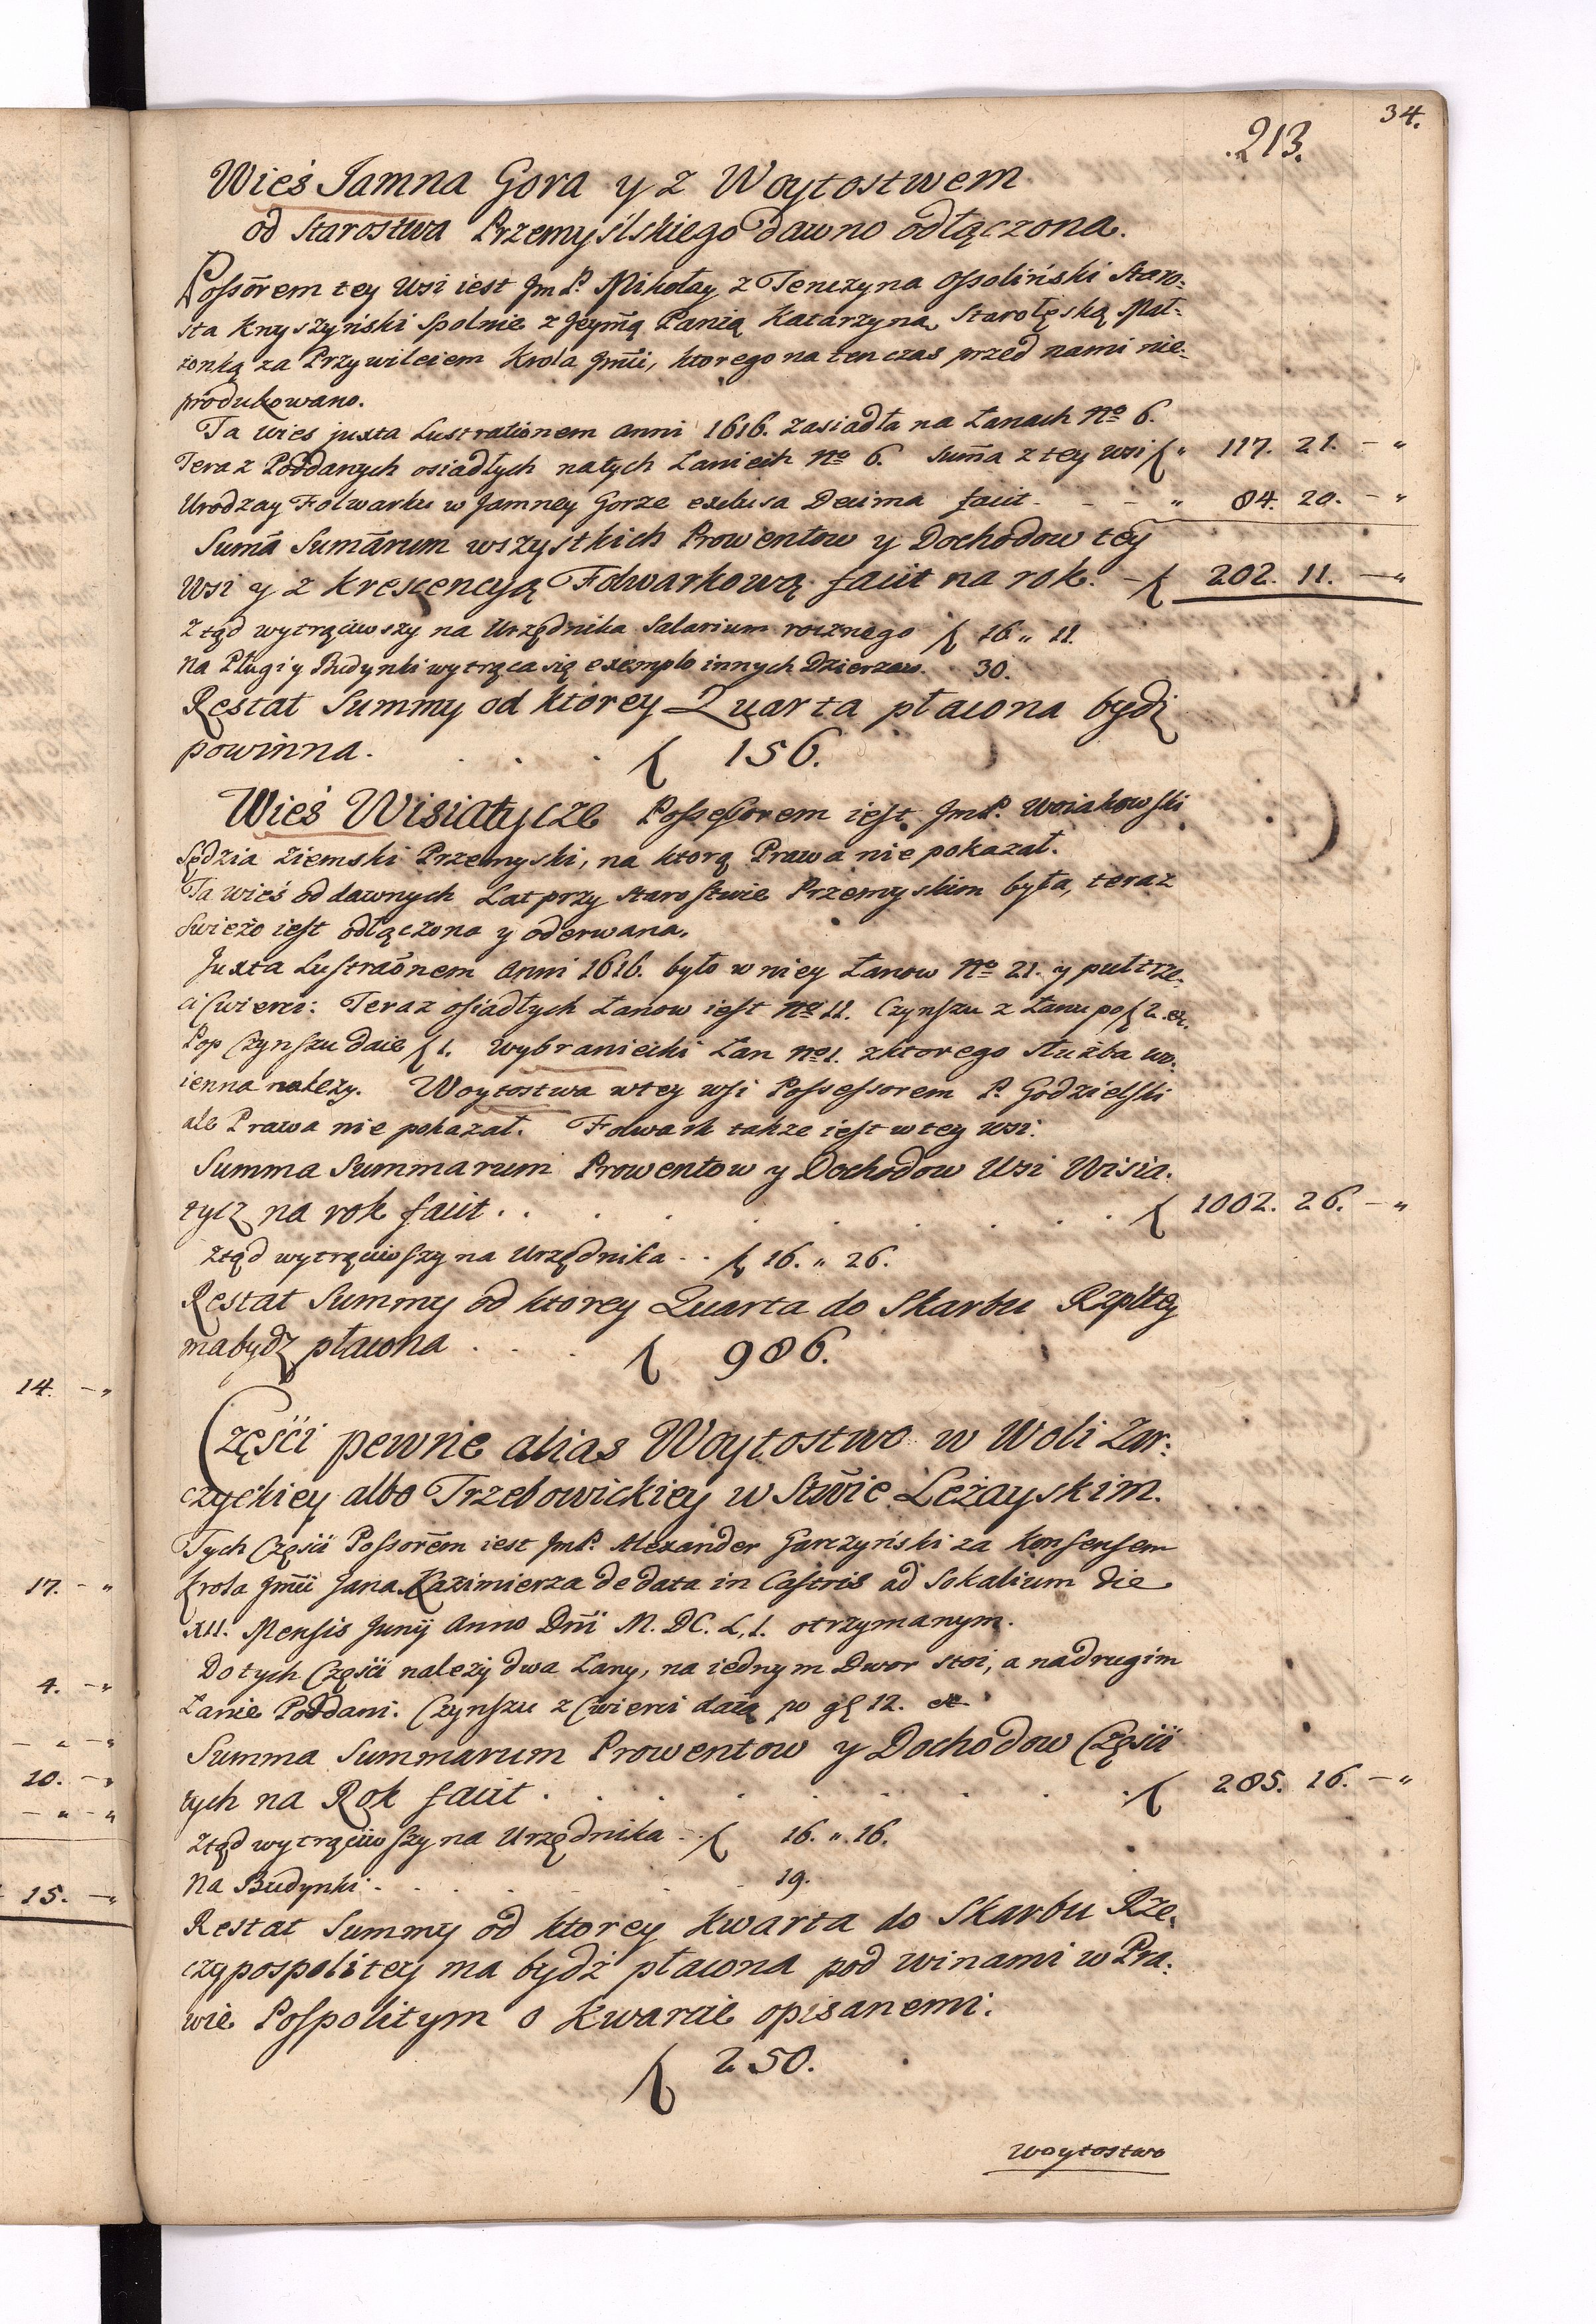 34.
213.
Wieś Jamna Gora y z Woytostwem
od Starostwa Przemyślskiego dawno odłączona.
Possorem tey Wsi iest Jm P. Mikołay z Tenczyna Ossoliński Staro-
sta Knyszyński spolnie z Jeymą Panią Katarzyną Starołęską Mał-
żonką za Przywileiem Krola Jmći, ktorego na ten czas przed nami nie-
produkowano.
Ta wies juxta Lustrationem Anni 1616. zasiadła na Łanach No 6.
Teraz Poddanych osiadłych na tych Łaniech No 6. Suma z tey wsi f " 117. 21. - "
Urodzay Folwarku w Jamney Gorze exclusa Decima facit - - - " 84. 20. - "
Suma Sumarum wszystkich Prowentow y Dochodow tey
Wsi y z krescencyą Folwarkową facit na rok. - f 202. 11. - "
Ztąd wytrąciwszy na Urzędnika Salarium rocznego f 16 " 11.
Na Pługi y Budynki wytrąca się exemplo innych Dzierzaw. 30.
Restat Summy od ktorey Quarta płacona bydź
powinna. . . . f 156.
Wieś Wisiatycze Possessorem iest JmP. Wsiakowski
Sędzia Ziemski Przemyski, na ktorą Prawa nie pokazał.
Ta wieś od dawnych Lat przy Starostwie Przemyskim była, teraz
swieżo iest odłączona y oderwana.
Juxta Lustraonem Anni 1616. było w niey Łanow No 21. y pułtrze-
ci Cwierci: Teraz osiadłych Łanow iest No 11. Czynszu z Łanu po f 2. etc.
Pop Czynszu daie f 1. Wybraniecki Łan No 1. z ktorego służba wo-
ienna należy. Woytostwa w tey wsi Possessorem P. Godzielski
ale Prawa nie pokazał. Folwark takze iest w tey wsi.
Summa Summarum Prowentow y Dochodow Wsi Wisia-
tycz na rok facit . . . . f 1002. 26. - "
Ztąd wytrąciwszy na Urzędnika . . f 16. " 26.
Restat Summy od ktorey Quarta do Skarbu Rzpltey
ma bydz płacona . . . f 986.
Częsći pewne alias Woytostwo w Woli Zar-
czyckiey albo Trzebowickiey w Stwie Leżayskim.
Tych Częsći Possorem iest JmP. Alexander Garczyński za Konsensem
Krola Jmći Jana Kazimierza de data in Castris ad Sokalium die
XII. Mensis Junij Anno Dni M. DC. L, I. otrzymanym.
Do tych Częsći należy dwa Łany, na iednym Dwor stoi, a na drugim
Łanie Poddani. Czynszu z Cwierci daią po gł 12. etc
Summa Summarum Prowentow y Dochodow Częsći
tych na Rok facit . . . . f 285. 16. - "
Ztąd wytrąciwszy na Urzędnika . . f 16. " 16.
Na Budynki . . . . 19.
Restat Summy od ktorey Kwarta do Skarbu Rze-
czypospolitey ma bydź płacona pod winami w Pra-
wie Pospolitym o Kwarcie opisanemi.
f 250.
Woytostwo
14. - "
17. - "
4. - "
- " - "
10. - "
- " - "
15. - "